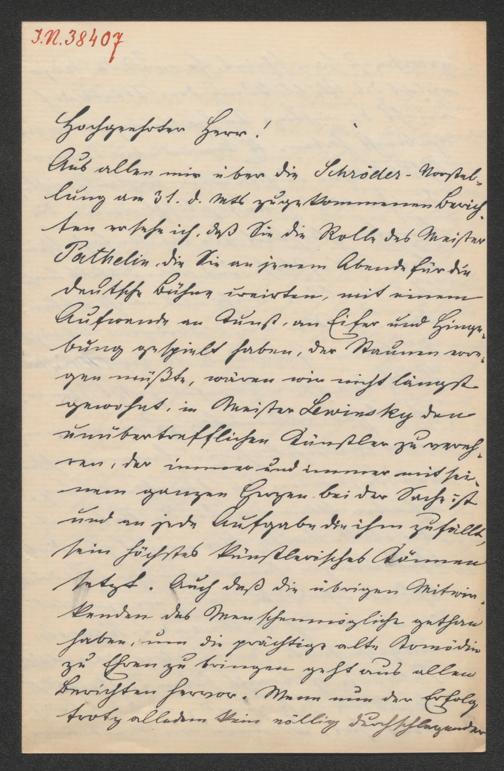 J.N. 38407
Hochgeehrter Herr!
Aus allen mir über die Schröder-Vorstel-
lung am 31. d. Mts zugekommenen Berich-
ten ersehe ich, daß Sie die Rolle des Meister
Pathelin, die Sie an jenem Abende für die
deutsche Bühne creirten, mit einem
Aufwande an Kunst, an Eifer und Hinge-
bung gespielt haben, der Staunen erre-
gen müßte, wären wir nicht längst
gewohnt, in Meister Lewinsky den
unübertrefflichen Künstler zu vereh-
ren, der immer und immer mit sei-
nem ganzen Herzen bei der Sache ist
und an jede Aufgabe die ihm zufällt,
sein höchstes künstlerisches Können
setzt. Auch daß die übrigen Mitwir-
kenden das Menschenmögliche gethan
haben, um die prächtige alte Komödie
zu Ehren zu bringen geht aus allen
Berichten hervor. Wenn nun der Erfolg
trotz alledem kein völlig durchschlagender